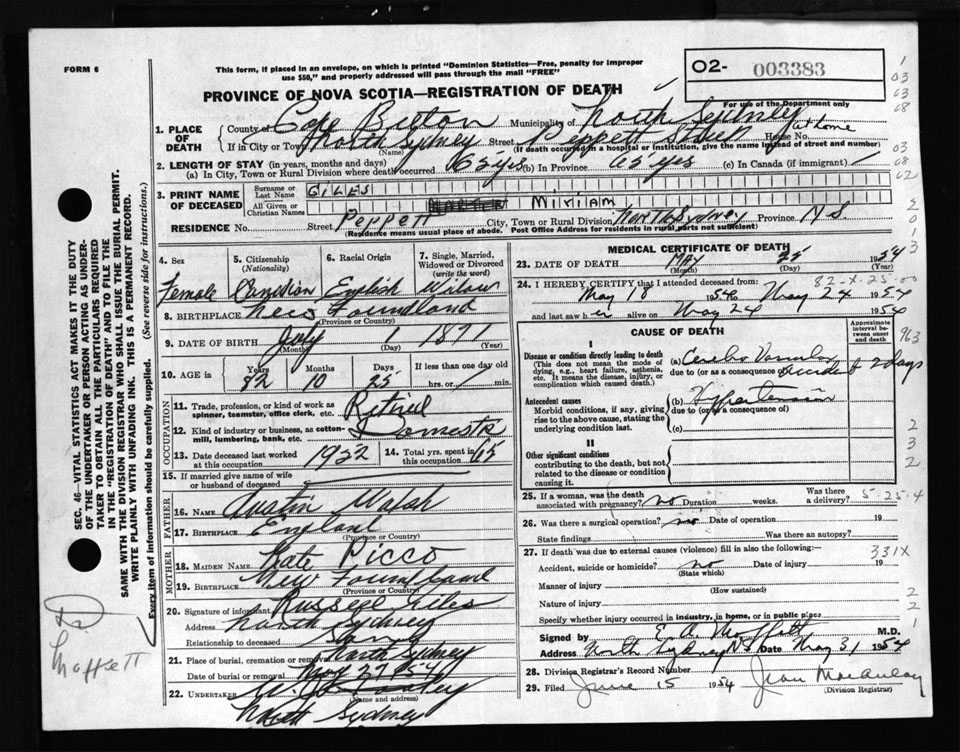 FORM 6
This form, if placed in an envelope, on which is printed "Dominion Statistics—Free, penalty for improper
use $50," and properly addressed will pass through the mail "FREE"
02- 003383
For use of the Department only
PROVINCE OF NOVA SCOTIA—REGISTRATION OF DEATH
1. PLACE OF DEATH
County of Cape Breton Municipality of North Sydney
If in City or Town North Sydney Street Peppett Street House No. at home
(Name) (If death occurred in a hospital or institution, give the name instead of street and number)
2. LENGTH OF STAY (in years, months and days)
(a) In City, Town or Rural Division where death occurred 62 yrs (b) In Province 62 yrs (c) In Canada (if immigrant)
3. PRINT NAME OF DECEASED
Surname or Last Name GILES
All Given or Christian Names Miriam
RESIDENCE No. Street Peppett City, Town or Rural Division North Sydney Province N.S.
(Residence means usual place of abode. Post Office Address for residents in rural parts not sufficient)
4. Sex Female
5. Citizenship (Nationality) Canadian
6. Racial Origin English
7. Single, Married, Widowed or Divorced (write the word) Widow
8. BIRTHPLACE New Foundland
(Province or Country)
9. DATE OF BIRTH July 1 1871
(Month) (Day) (Year)
10. AGE in Years 82 Months 10 Days 25 If less than one day old hrs. or min.
11. Trade, profession, or kind of work as spinner, teamster, office clerk, etc. Retired
12. Kind of industry or business, as cotton-mill, lumbering, bank, etc. Domestic
13. Date deceased last worked at this occupation 1932
14. Total yrs. spent in this occupation 65
15. If married give name of wife or husband of deceased
FATHER
16. NAME Austin Walsh
17. BIRTHPLACE England
(Province or Country)
MOTHER
18. MAIDEN NAME Kate Picco
19. BIRTHPLACE New Foundland
(Province or Country)
20. Signature of informant Russell Giles
Address North Sydney
Relationship to deceased Son
21. Place of burial, cremation or removal North Sydney
Date of burial or removal May 27 1954
22. UNDERTAKER
(Name and address)
North Sydney
MEDICAL CERTIFICATE OF DEATH
23. DATE OF DEATH MAY 25 1954
(Month) (Day) (Year)
82-X-25-00
24. I HEREBY CERTIFY that I attended deceased from:
May 18 1954 to May 24 1954
and last saw her alive on May 24 1954
CAUSE OF DEATH
Approximate interval between onset and death
I
Disease or condition directly leading to death
(This does not mean the mode of dying, e.g., heart failure, asthenia, etc. It means the disease, injury, or complication which caused death.)
(a) Cerebro Vascular
due to (or as a consequence of) Accident 2 days
Antecedent causes
Morbid conditions, if any, giving rise to the above cause, stating the underlying condition last.
(b) Hypertension
due to (or as a consequence of)
(c)
II
Other significant conditions
contributing to the death, but not related to the disease or condition causing it.
25. If a woman, was the death associated with pregnancy? no Duration weeks. Was there a delivery? 5-25-4
26. Was there a surgical operation? no Date of operation 19
State findings Was there an autopsy?
27. If death was due to external causes (violence) fill in also the following:- 331X
Accident, suicide or homicide? no Date of injury 19
(State which)
Manner of injury
(How sustained)
Nature of injury
Specify whether injury occurred in industry, in home, or in public place
Signed by E. A. Moffett M.D.
Address North Sydney NS Date May 31 1954
28. Division Registrar's Record Number
29. Filed June 15 1954 Jean MacAulay
(Division Registrar)
SEC. 46—VITAL STATISTICS ACT MAKES IT THE DUTY
OF THE UNDERTAKER OR PERSON ACTING AS UNDER-
TAKER TO OBTAIN ALL THE PARTICULARS REQUIRED
IN THE "REGISTRATION OF DEATH" AND TO FILE THE
SAME WITH THE DIVISION REGISTRAR WHO SHALL ISSUE THE BURIAL PERMIT.
WRITE PLAINLY WITH UNFADING INK. THIS IS A PERMANENT RECORD.
Every item of information should be carefully supplied. (See reverse side for instructions.)
Dr
Moffett
1
03
63
08
03
08
02
2
0
1
3
963
2
3
2
2
2
1